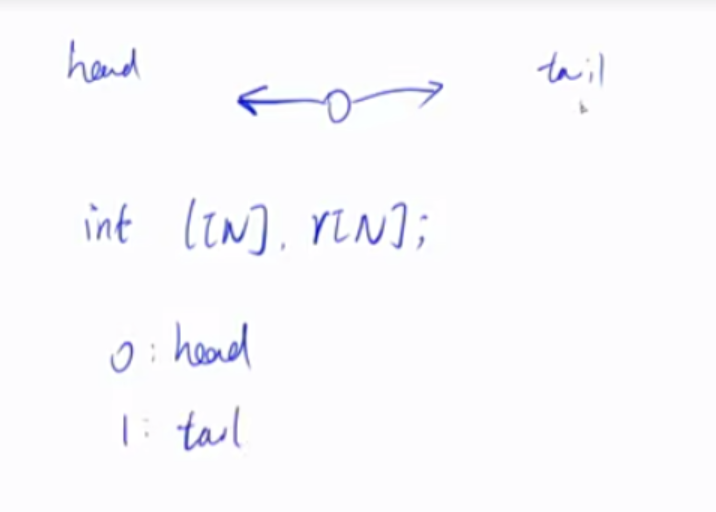 head tail
int l[N], r[N];
0: head
1: tail